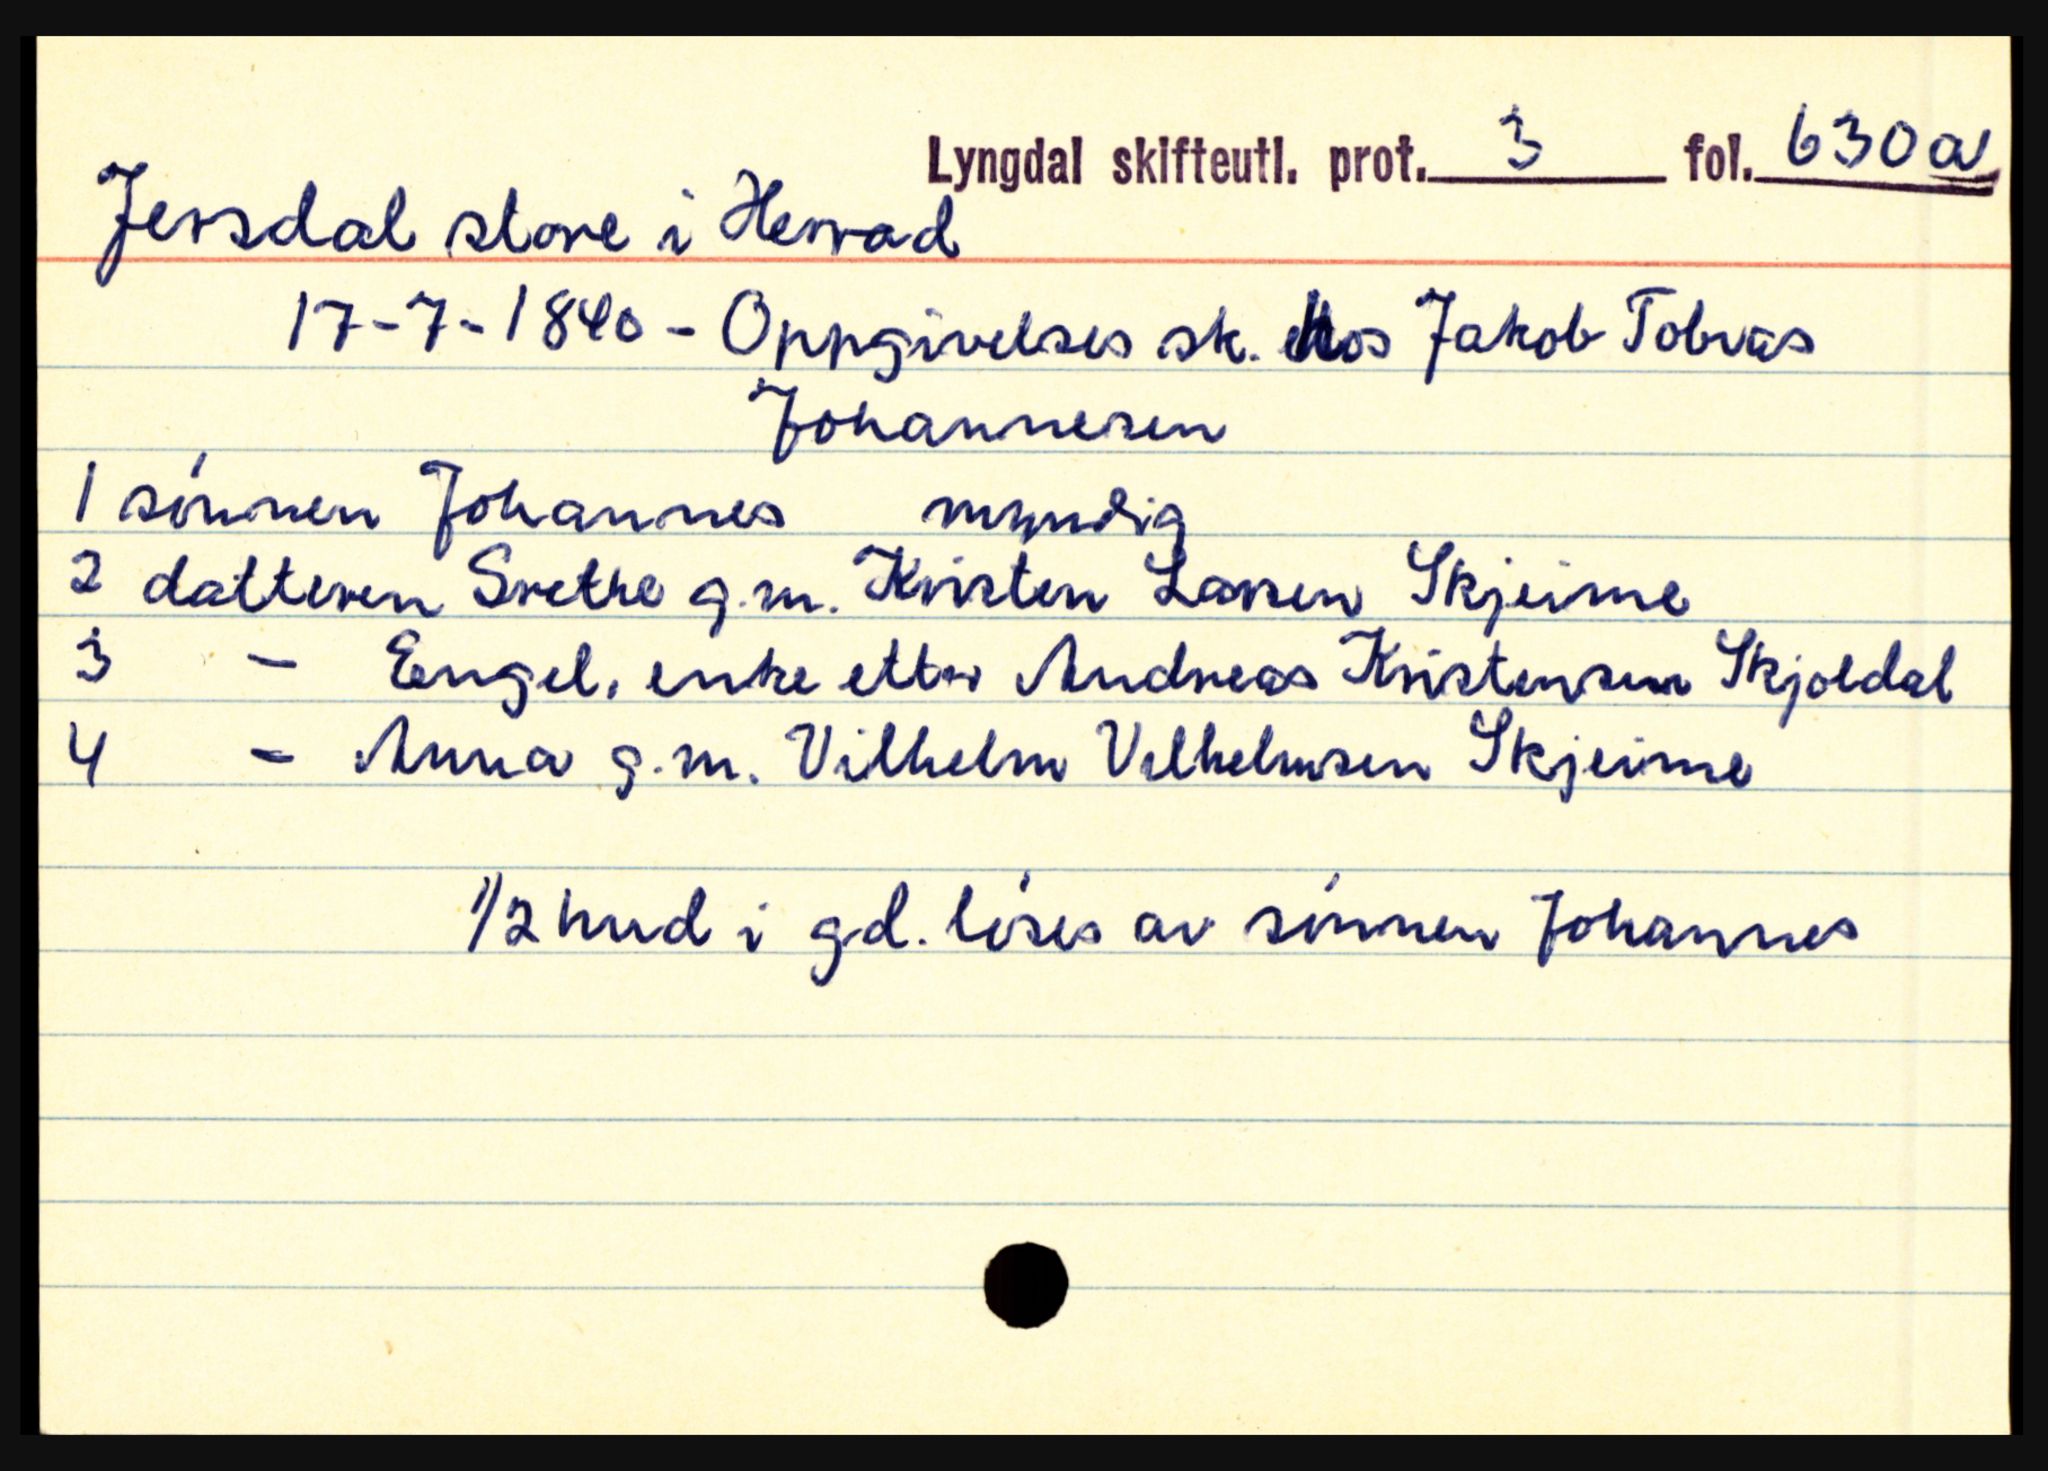 Lyngdal skifteutl. prot. 3 fol. 630a
Jersdal store i Herrad
17-7-1840 - Oppgivelses sk. hos Jakob Tobias
Johannesen
1 sönnen Johannes myndig
2 datteren Grethe g.m. Kristen Larsen Skjeime
3 - Engel, enke etter Andreas Kristensen Skjoldal
4 - Anna g.m. Vilhelm Vilhelmsen Skjeime
1/2 hud i gd. löses av sönnen Johannes